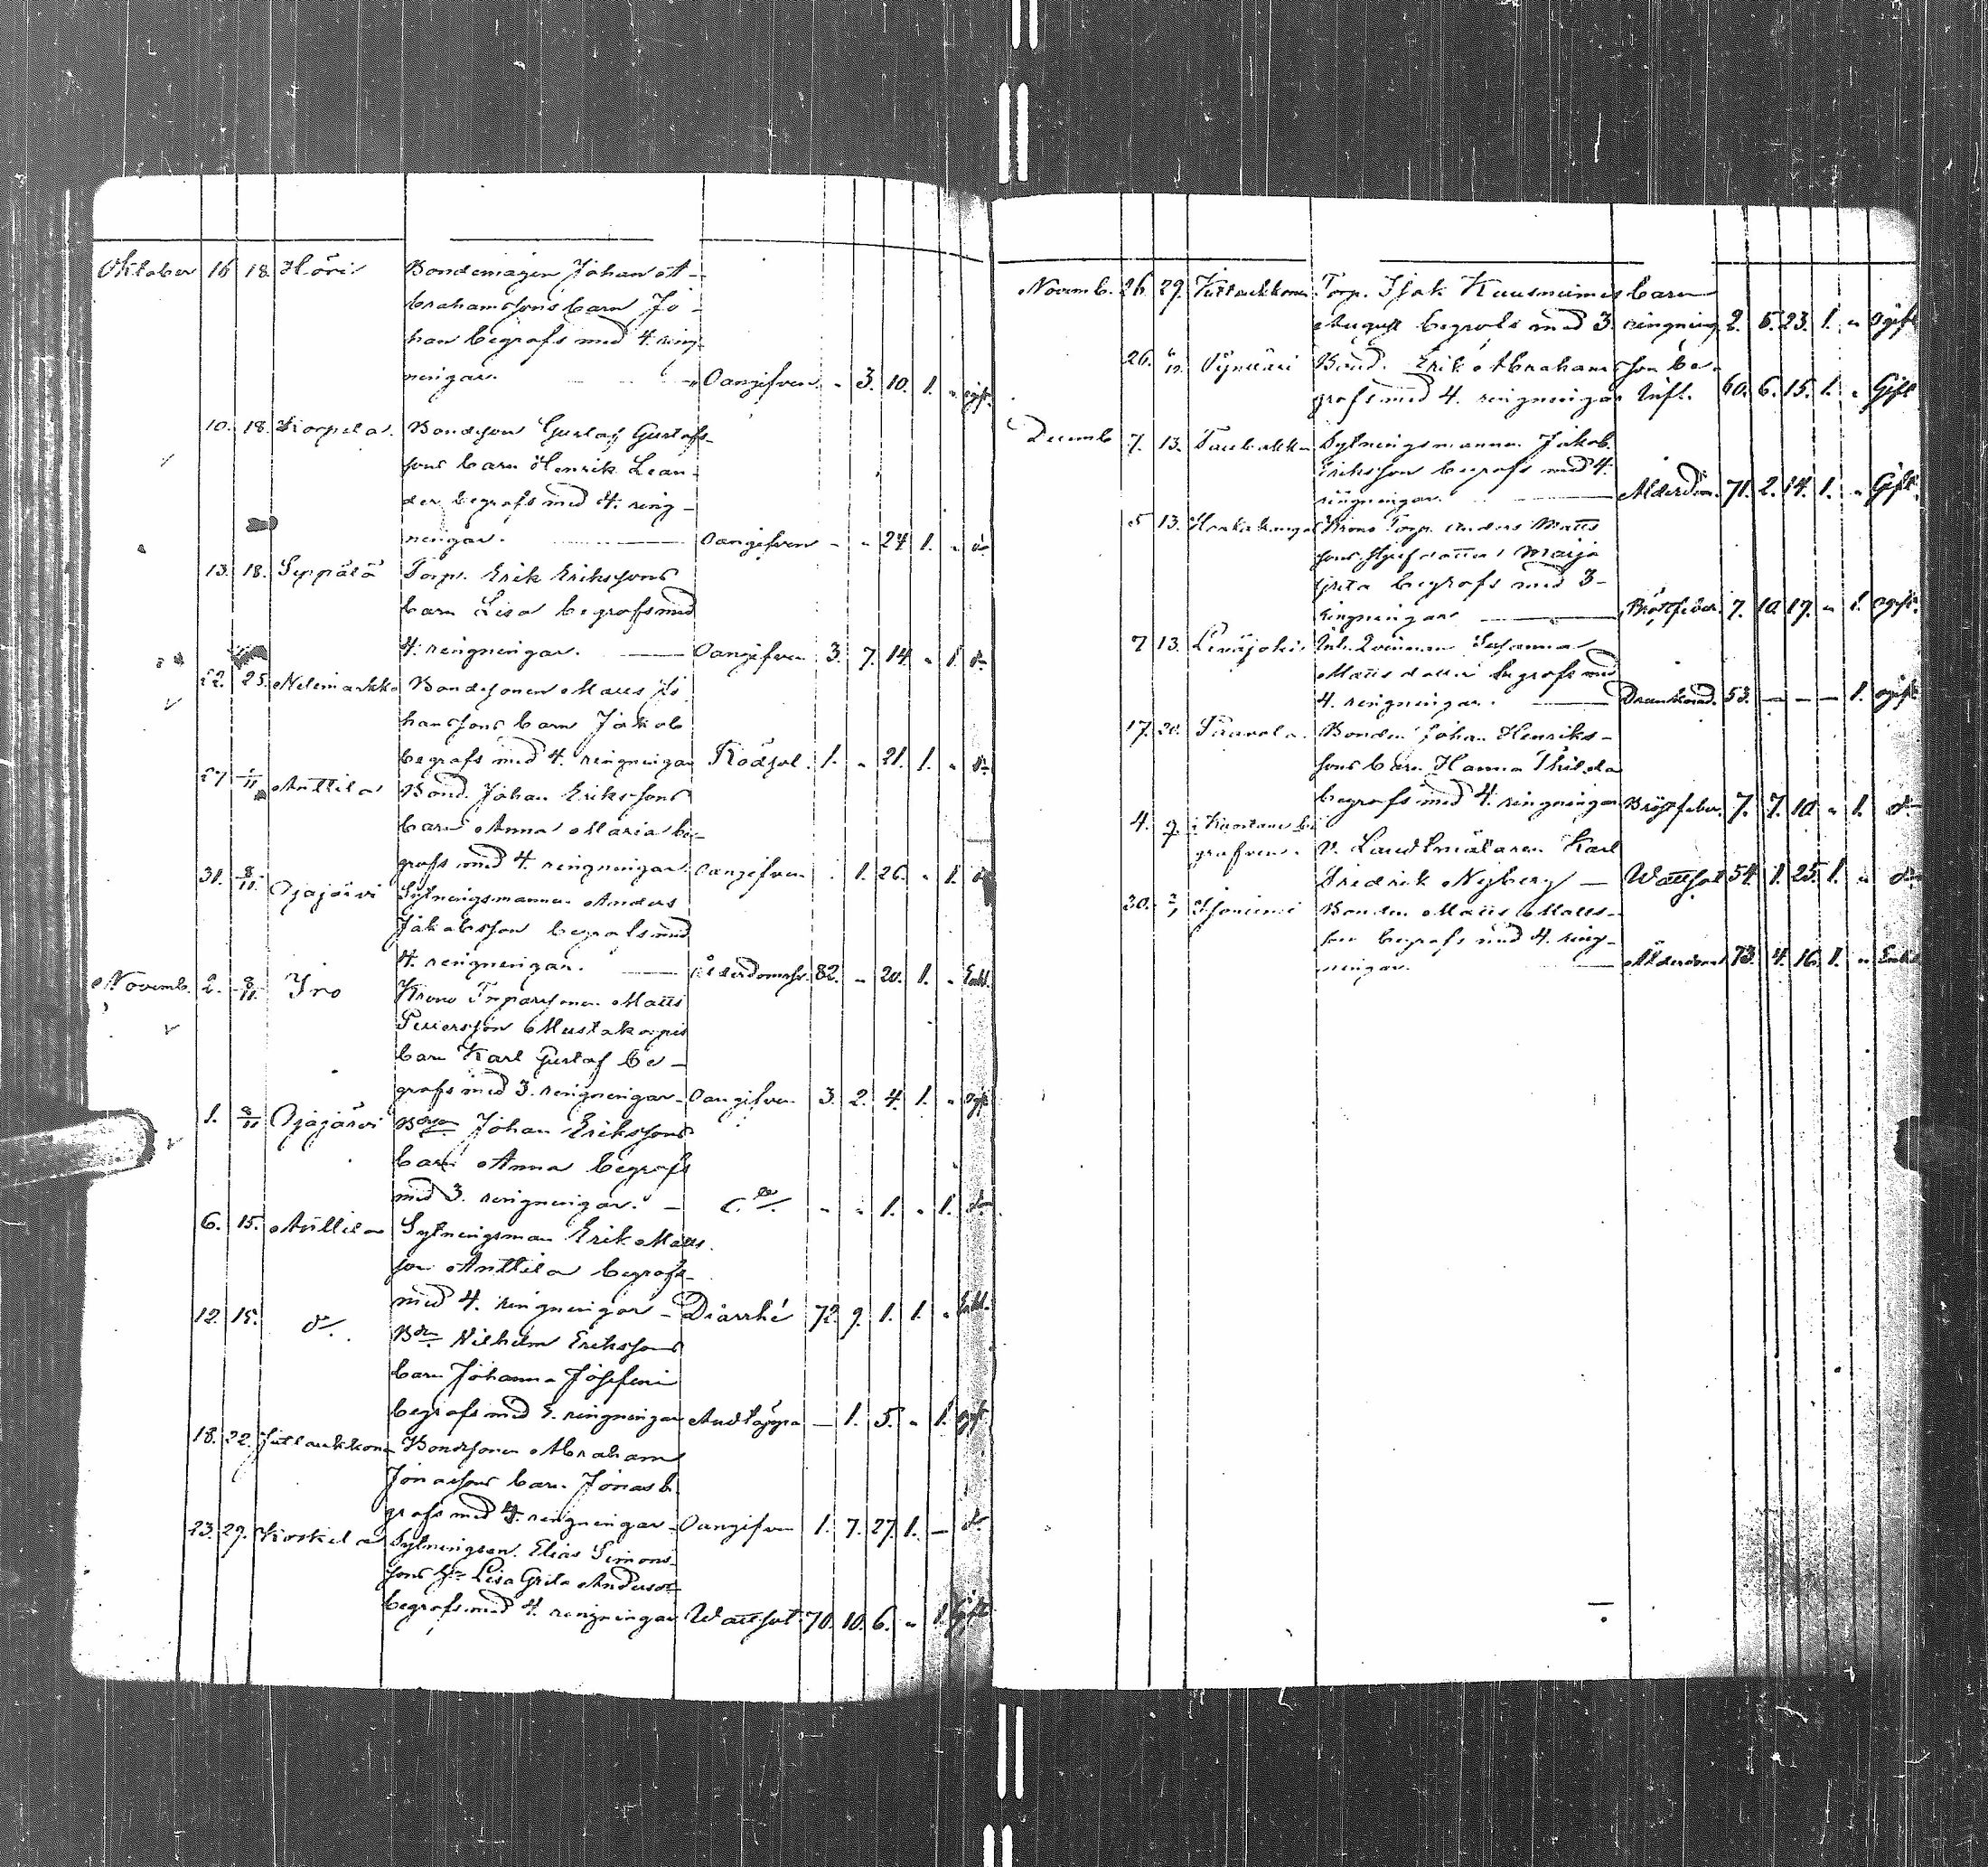 Oktober 16 18. Höri Bondemågen Johan A-
brahamssons barn Jo-
han begrafs med 4. ring-
ningar. Oangifven " 3. 10. 1. " ogift.
10. 18. Korpela. Bondeson Gustaf Gustafs-
sons barn Henrik Lean-
der begrafs med 4. ring-
ningar. Oangifven - " 24 1. " do
13. 18. Seppälä Torp. Erik Erikssons
barn Lisa begrafs med
4. ringningar. Oangifven 3. 7. 14. " 1. do
22. 25. Nelimarkka Bondesonen Matts Jo
hanssons barn Jakob
begrafs med 4. ringningar Rödsot. 1. " 21. 1. " do
27 1/11 Anttila Bond. Johan Erikssons
barn Anna Maria be-
grafs med 4. ringningar. Oangifven . 1. 26. " 1. do
31. 8/11. Ojajärvi Sytningsmannen Anders
Jakobsson begrafs med
4. ringningar. Ålderdomssv. 82. " 20. 1. " Enkl.
Novemb. 2. 8/11. Iro Krono Torparsonen Matts
Petersson Mustakorpis
barn Karl Gustaf be-
grafs med 3. ringningar Oangifven 3. 2. 4. 1. " ogift
1. 8/11 Ojajärvi Bdeson Johan Erikssons
barn Anna begrafs
med 3. ringningar. do " " 1. " 1. do
6. 15. Anttila Sytningsman Erik Matts
son Anttila begrafs
med 4. ringningar Diarrhé 72. 9. 1. 1. " Enkl.
12. 15. do. Bdn Wilhelm Erikssons
barn Johanna Josefina
begrafs med ringningar Andtäppa — 1. 5. " 1. ogift
18. 22. Juttaukkon Bondesonen Abraham
Jonassons barn Jonas be
grafs med 4. ringningar Oangifven 1. 7. 27. 1. — do
23. 29. Koskela Sytningsm. Elias Simons-
sons h. Lisa Greta Andersdr
begrafs med 4. ringningar Wattsot 70. 10. 6. " 1. Gift
Novemb. 26. 29. Torp. Isak Kuusniemis barn
August begrafs med 3. ringning. 2. 5. 23. 1. " ogift
26. Pynnäri Bond. Erik Abrahamsson be-
grafs med 4. ringningar Infl. 60. 6. 15. 1. " Gift
Decemb. 7. 13. Sytningsmannen Jakob
Eriksson begrafs med 4.
ringningar. Ålderdom. 71. 2. 14. 1. " Gift.
5 13. Honkakangas Krono Torp. Anders Matts
sons Maija
Greta begrafs med 3-
ringningar Bröstfeber. 7. 10. 17. " 1. ogift.
7 13. Levijoki. Inh. Qvinnan Susanna
Matts dotter begrafs med
4. ringningar. Drunknad. 53. — — — 1. ogift
17. 20. Paavola. Bonden Johan Henriks-
sons barn Hanna Thilda
begrafs med 4. ringningar Bröstfeber. 7. 7. 10 " 1. do
4. 9. i Kuortane be
grafven. v. Landtmätaren Karl
Fredrik Nyberg — Wattsot 54. 1. 25. 1. " do
30. Isoniemi Bonden Matts Matts-
son begrafs med 4. ring-
ningar. Ålderdom 73. 4. 16. 1. " Enkl.